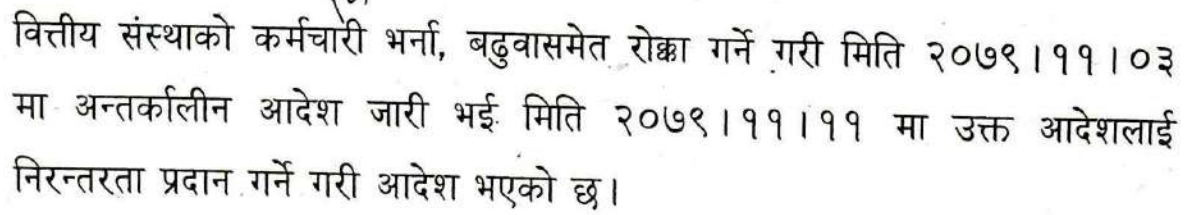 वित्तीय संस्थाको कर्मचारी भर्ना, बढुवासमेत रोक्का गर्ने गरी मिति २०७९।११।०३
मा अन्तर्कालीन आदेश जारी भई मिति २०७९।११।११ मा उक्त आदेशलाई
निरन्तरता प्रदान गर्ने गरी आदेश भएको छ।